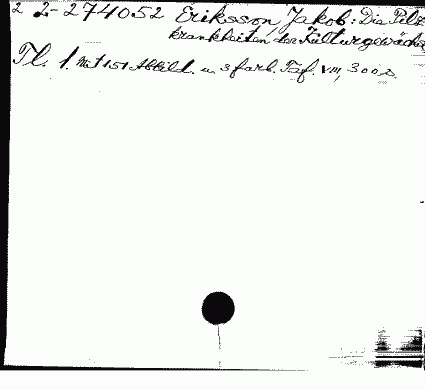 2 2-274052 Eriksson, Jakob: Die Pilz
krankheiten der Kulturgewächse
Tl. 1. Mit 151 Abbild. u. 3 farb. Taf. VIII, 300 S.